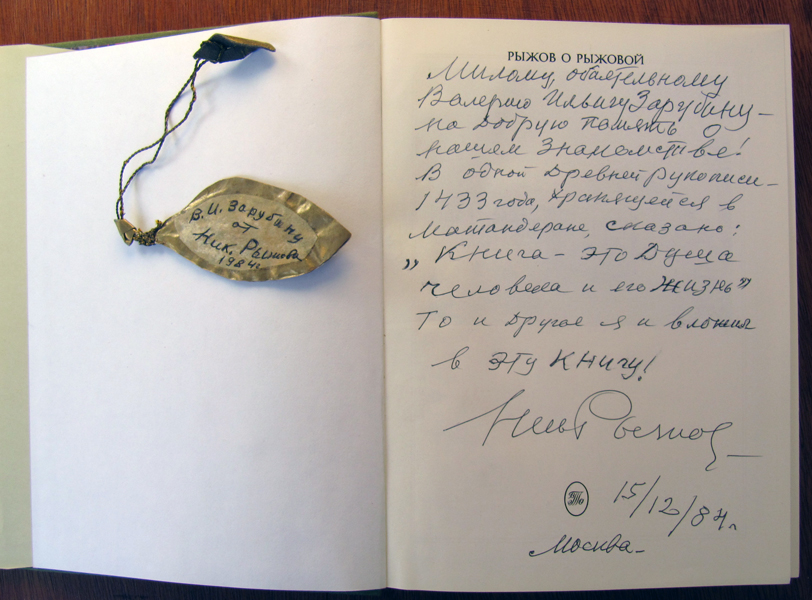 В.И. Зарубину
от
Ник. Рыжова
1984г.
РЫЖОВ О РЫЖОВОЙ
Милому, обаятельному
Валерию Ильичу Зарубину –
на добрую память о
нашем знакомстве!
В одной древней рукописи –
1433 года, хранящейся в
Матандеране, сказано:
„Книга – это Душа
человека и его жизнь"
То и другое я и вложил
в эту книгу!
Ник Рыжов
15/12/84г.
Москва –